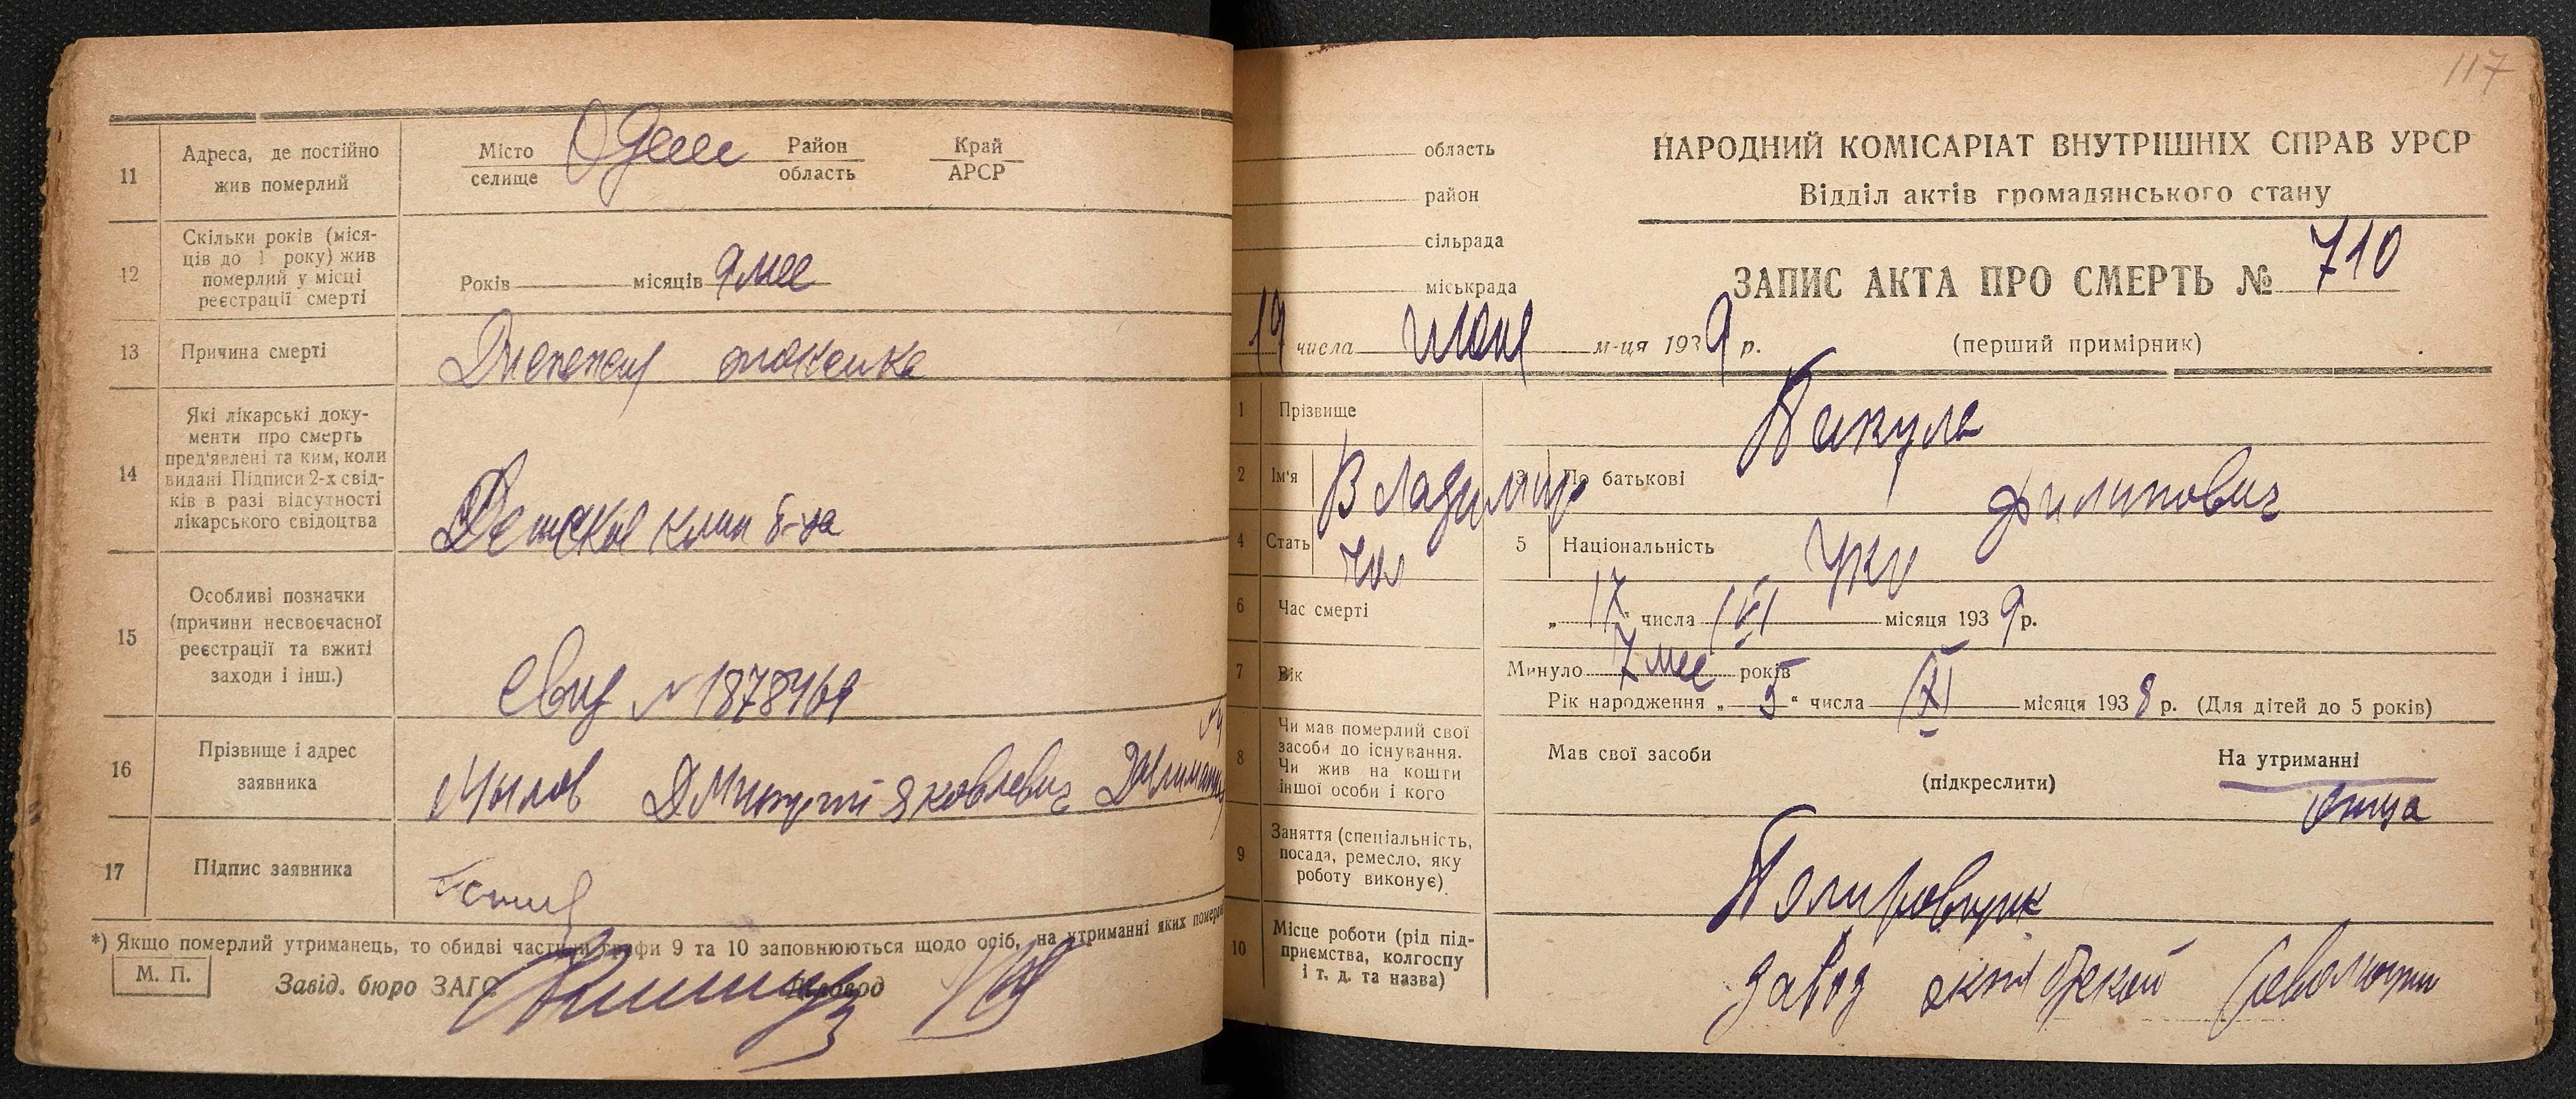 11 Адреса, де постійно жив померлий
Місто селище Одесс Район область Край АРСР
12 Скільки років (міся-
ців до 1 року) жив
померлий у місці
реєстрації смерті
Років місяців 9 мес
13 Причина смерті
токсическая
14 Які лікарські доку-
менти про смерть
пред'явлені та ким, коли
видані Підписи 2-х свід-
ків в разі відсутності
лікарського свідоцтва
Детской клин б-ца
15 Особливі позначки
(причини несвоєчасної
реєстрації та вжиті
заходи і інш.)
Свид № 1878469
16 Прізвище і адрес
заявника
Мылов Дмитрий Яковлевич
17 Підпис заявника
*) Якщо померлий утриманець, то обидві частини графи 9 та 10 заповнюються щодо осіб, на утриманні яких померлий
М. П. Завід. бюро ЗАГС Діловод
117
область
район
сільрада
міськрада
НАРОДНИЙ КОМІСАРІАТ ВНУТРІШНІХ СПРАВ УРСР
Відділ актів громадянського стану
ЗАПИС АКТА ПРО СМЕРТЬ № 710
19 числа июня м-ця 1939 р. (перший примірник)
1 Прізвище Пикула
2 Ім'я Владимир 3 По батькові Филипович
4 Стать чол 5 Національність Укр
6 Час смерті „17" числа VI місяця 1939 р.
7 Вік Минуло 7 мес років
Рік народження „5" числа XI місяця 1938 р. (Для дітей до 5 років)
8 Чи мав померлий свої
засоби до існування.
Чи жив на кошти
іншої особи і кого
Мав свої засоби (підкреслити) На утриманні
отца
9 Заняття (спеціальність,
посада, ремесло, яку
роботу виконує)
Полировщик
10 Місце роботи (рід під-
приємства, колгоспу
і т. д. та назва)
завод октябрской революции